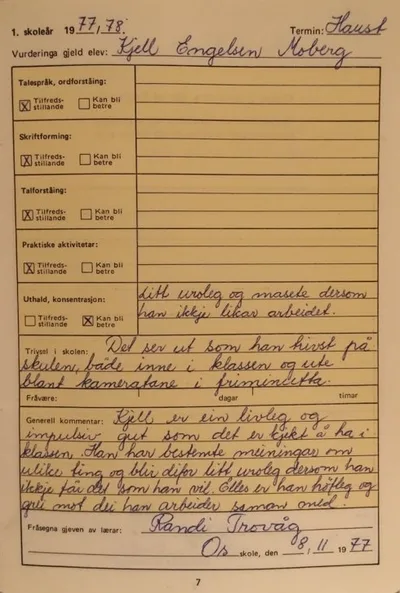 1. skoleår 1977, 78. Termin: Haust
Vurderinga gjeld elev: Kjell Engelsen Moberg
Talespråk, ordforståing:
☒ Tilfreds-stillande ☐ Kan bli betre
Skriftforming:
☒ Tilfreds-stillande ☐ Kan bli betre
Talforståing:
☒ Tilfreds-stillande ☐ Kan bli betre
Praktiske aktivitetar:
☒ Tilfreds-stillande ☐ Kan bli betre
Uthald, konsentrasjon:
☐ Tilfreds-stillande ☒ Kan bli betre
Litt uroleg og masete dersom
han ikkje likar arbeidet.
Trivsel i skolen: Det ser ut som han trivst på
skulen, både inne i klassen og ute
blant kameratane i friminutta.
Fråvære: dagar timar
Generell kommentar: Kjell er ein livleg og
impulsiv gut som det er kjekt å ha i
klassen. Han har bestemte meiningar om
ulike ting og blir difor litt uroleg dersom han
ikkje får det som han vil. Elles er han høfleg og
grei mot dei han arbeider saman med.
Fråsegna gjeven av lærar: Randi Trovåg
Os skole, den 8, 11 1977
7